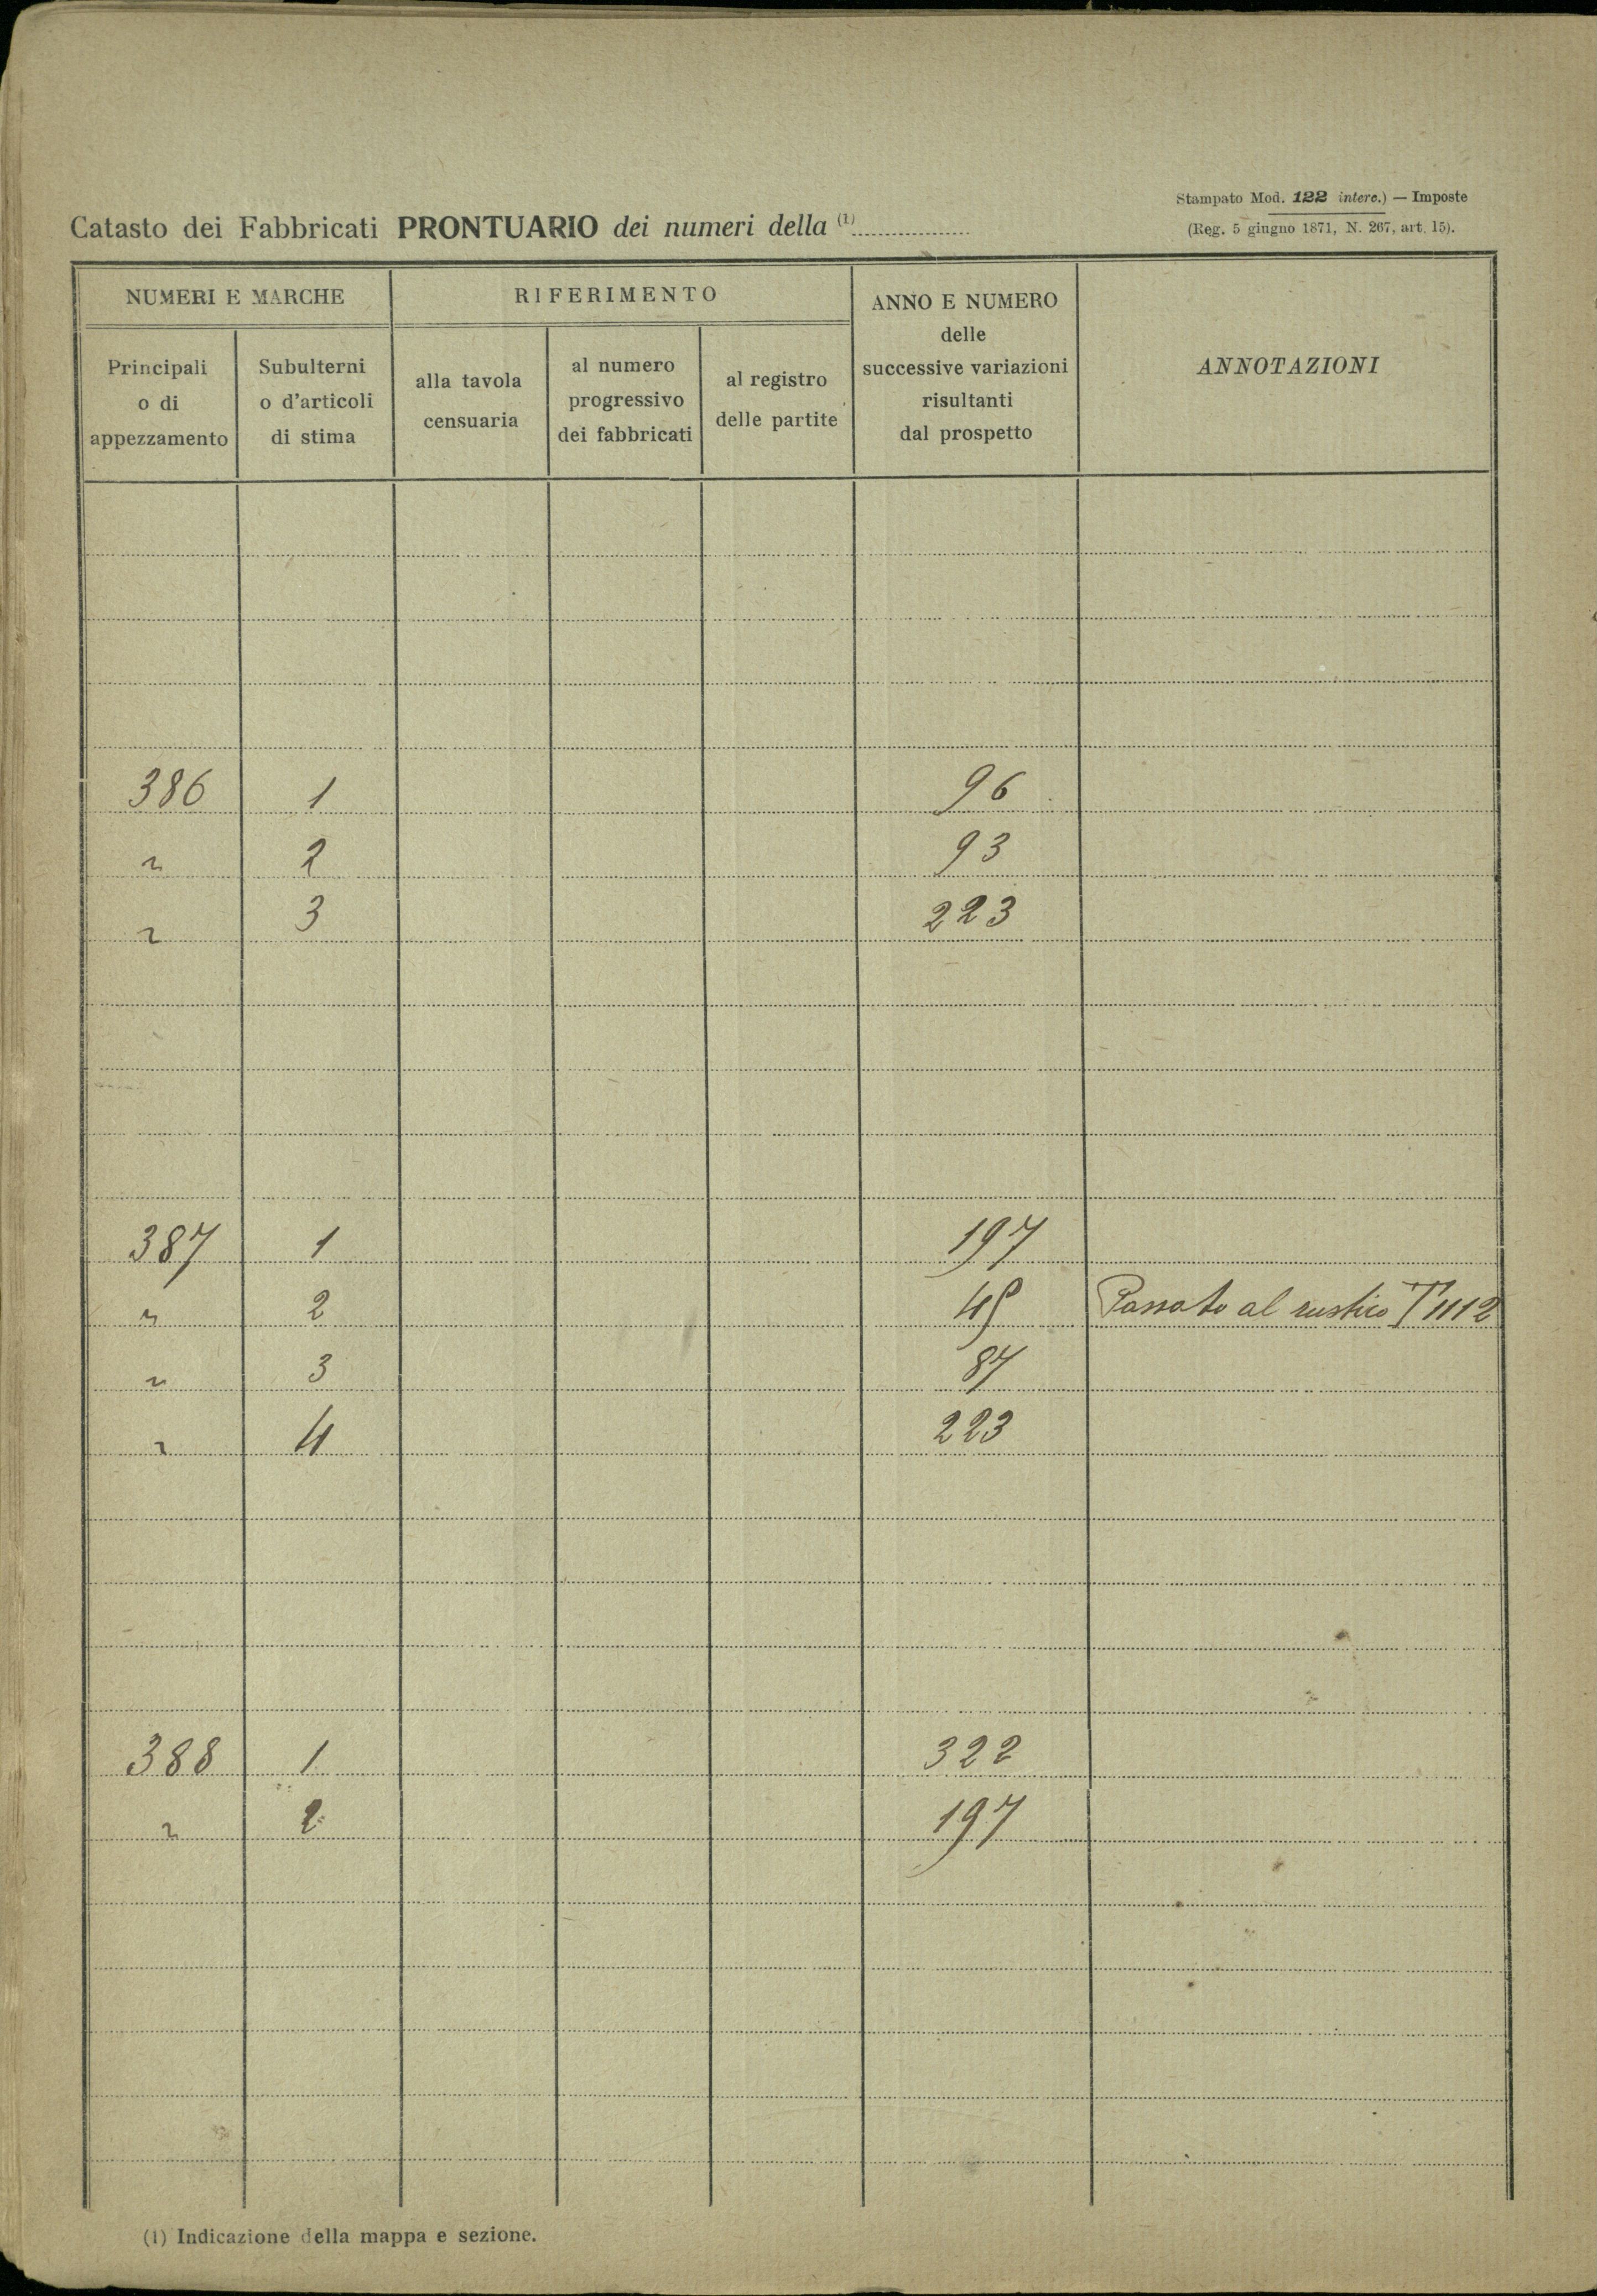 Stampato Mod. 122 interc.) — Imposte
(Reg. 5 giugno 1871, N. 267, art. 15).
Catasto dei Fabbricati PRONTUARIO dei numeri della (1)
NUMERI E MARCHE
Principali
o di
appezzamento
Subulterni
o d'articoli
di stima
RIFERIMENTO
alla tavola
censuaria
al numero
progressivo
dei fabbricati
al registro
delle partite
ANNO E NUMERO
delle
successive variazioni
risultanti
dal prospetto
ANNOTAZIONI
386 1 96
" 2 93
" 3 223
387 1 197
" 2 Passato al rustico T 1112
" 3 87
" 4 223
388 1 322
" 2 197
(1) Indicazione della mappa e sezione.